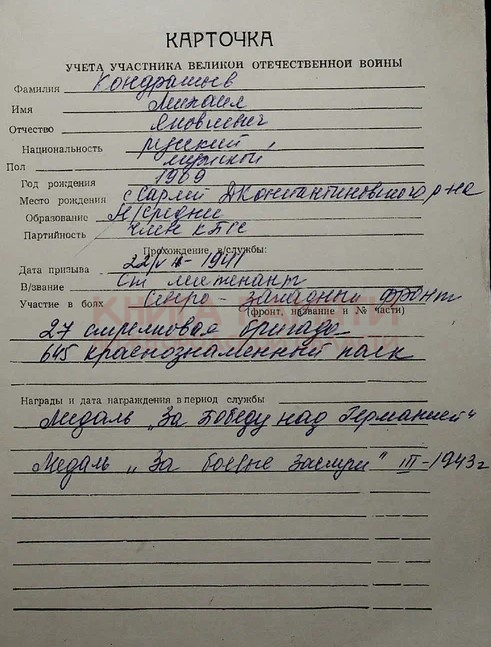 КАРТОЧКА
УЧЕТА УЧАСТНИКА ВЕЛИКОЙ ОТЕЧЕСТВЕННОЙ ВОЙНЫ
Фамилия Кондрашов
Имя Михаил
Отчество Яковлевич
Национальность русский
Пол мужской
Год рождения 1909
Место рождения с Сарлей ДКонстантиновского р-на
Образование Н/средне
Партийность член КПСС
Прохождение в/службы:
Дата призыва 1941
В/звание ст лейтенант
Участие в боях Северо-западный фронт
(фронт, название и № части)
27 стрелковая бригада
645 краснознаменный полк
Награды и дата награждения в период службы
Медаль „За Победу над Германией"
Медаль „За боевые заслуги" III-1943г
КНИГА ПАМЯТИ
ОБЛАСТИ